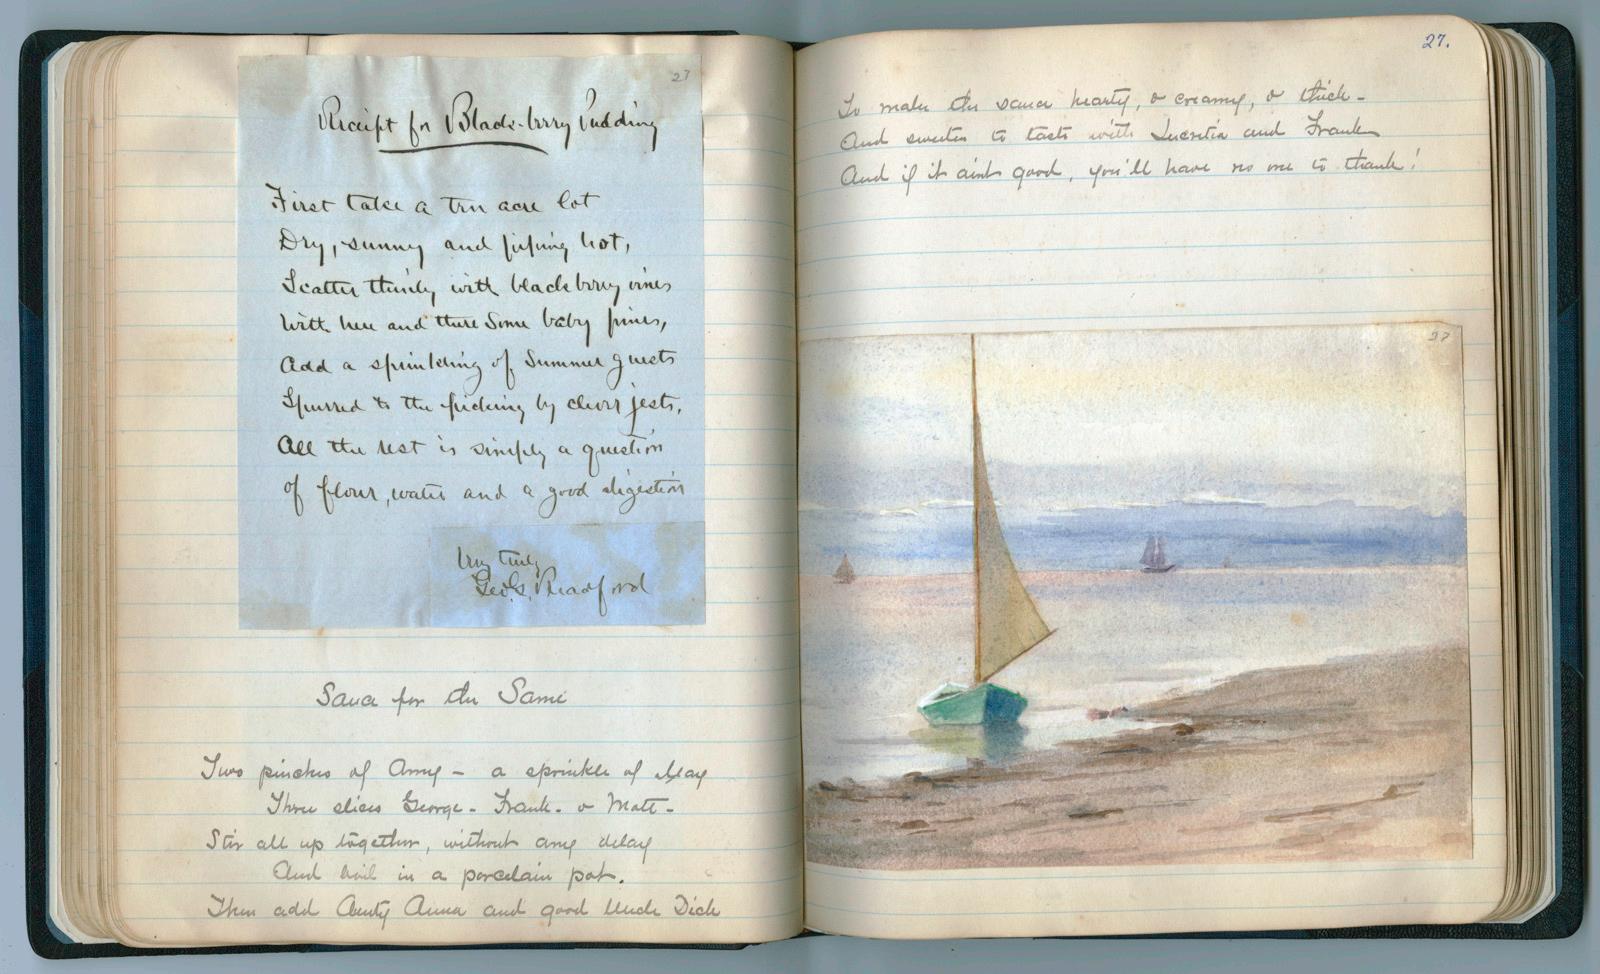 27
Receipt for Black-berry Pudding
First take a ten acre lot
Dry, sunny and piping hot,
Scatter thinly with blackberry vines
With here and there some baby pines,
Add a sprinkling of Summer guests
Spurred to the picking by clever jests,
All the rest is simply a question
of flour, water and a good digestion
Very truly
Geo. G. Bradford
Sauce for the Same
Two pinches of Amy - a sprinkle of May
Three slices George - Frank - & Matt -
Stir all up together, without any delay
And boil in a porcelain pot.
Then add Aunty Anna and good Uncle Dick
27.
To make the sauce hearty, & creamy, & thick -
And sweeten to taste with Lucretia and Frank
And if it aint good, you'll have no one to thank!
27